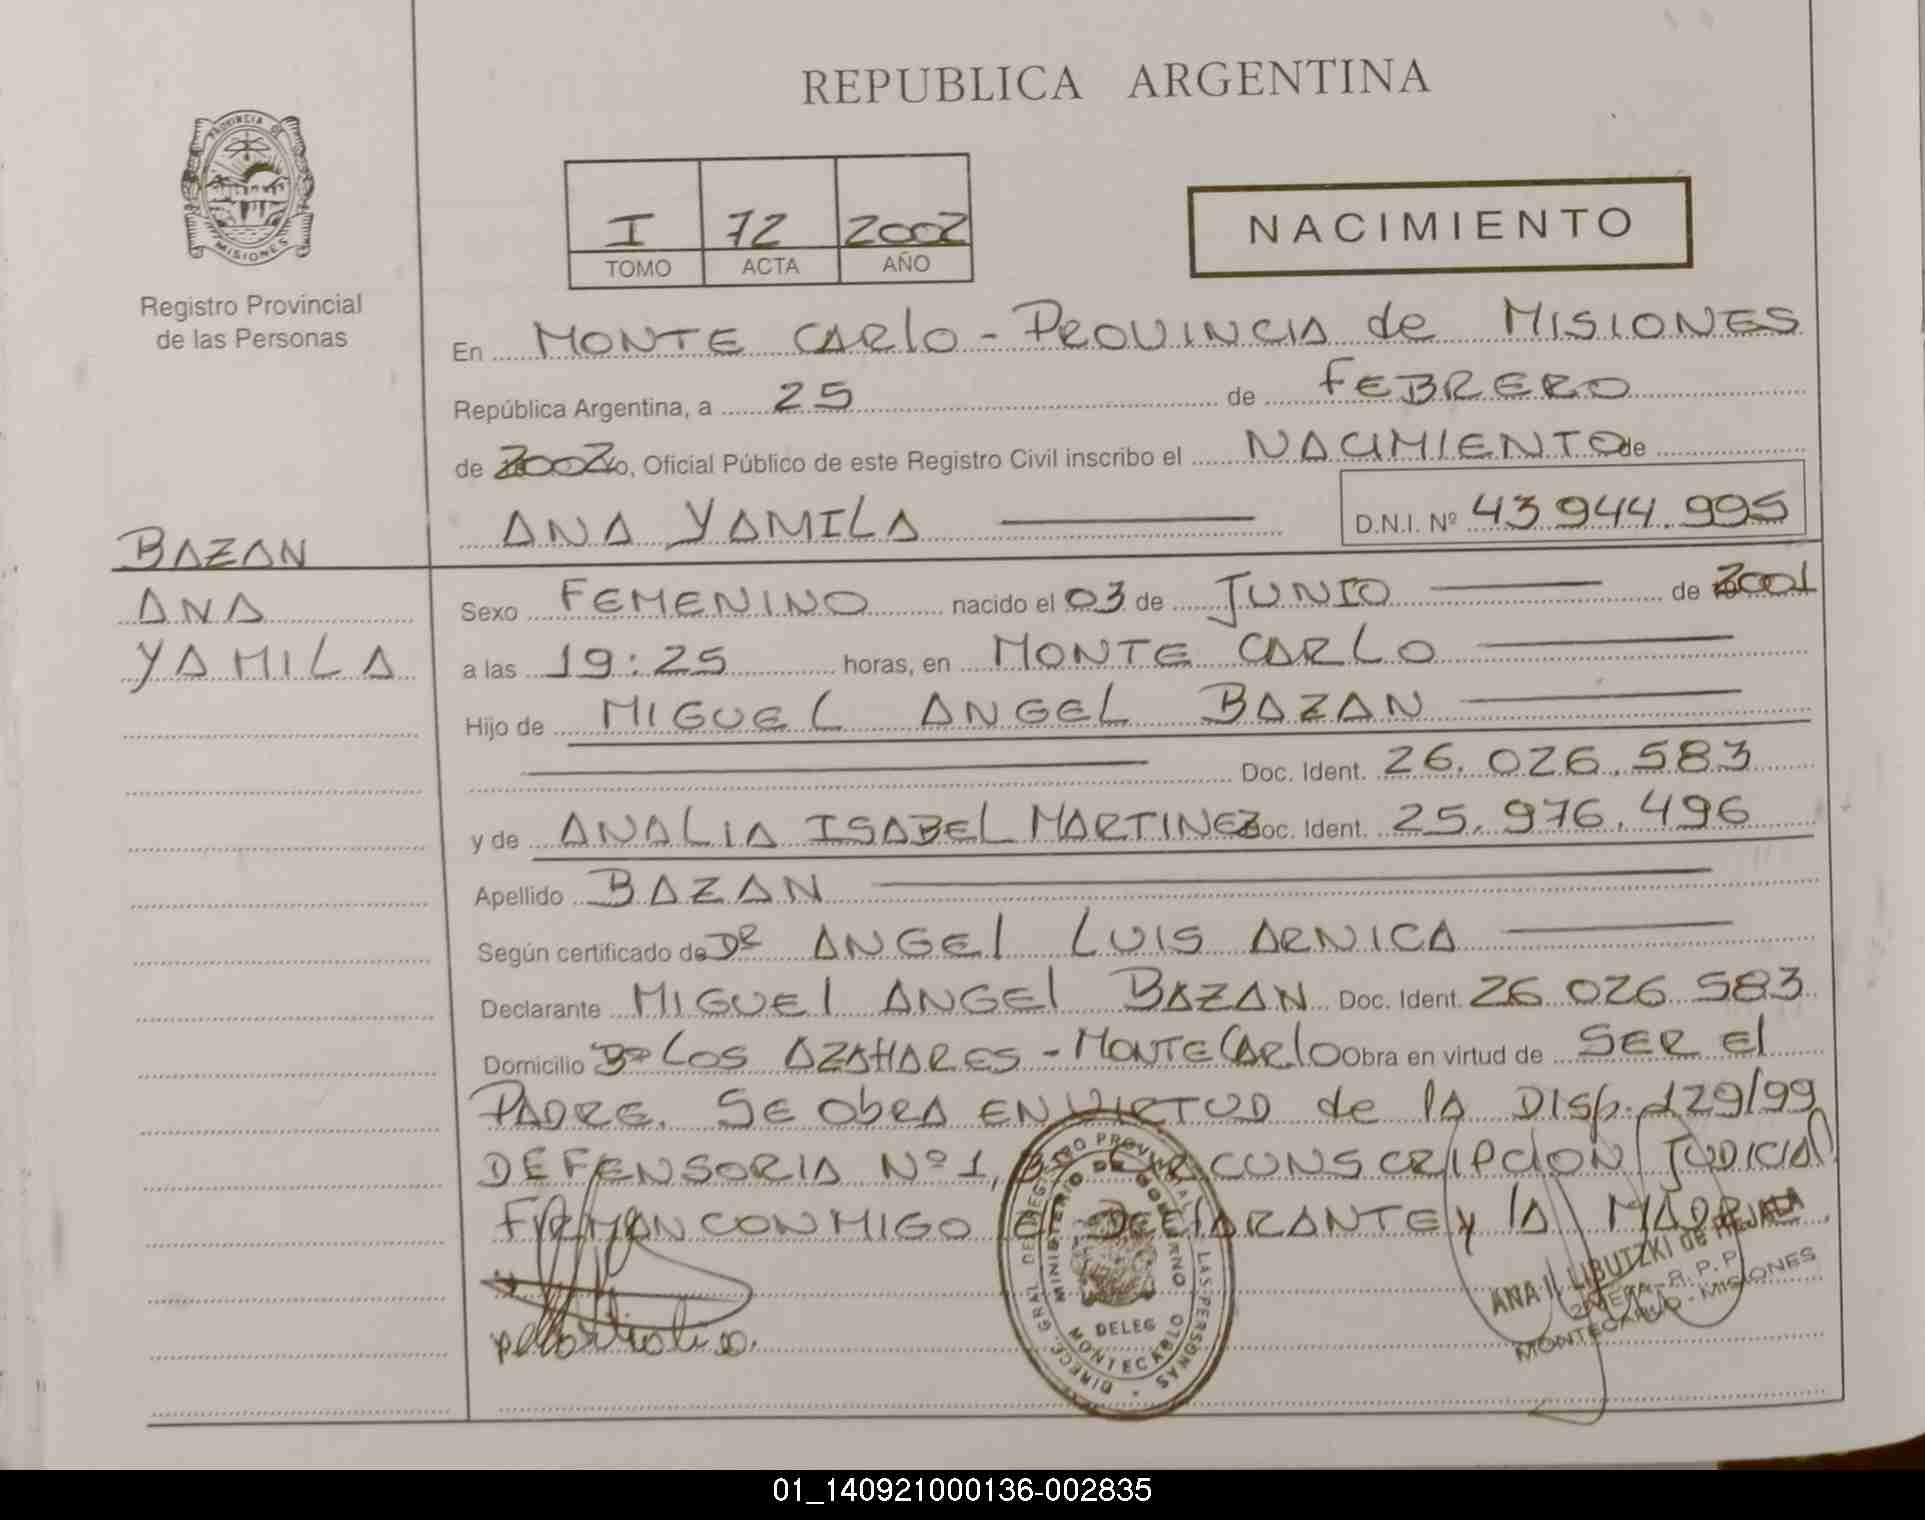 REPUBLICA ARGENTINA
PROVINCIA DE
MISIONES
Registro Provincial
de las Personas
I 72 2002
TOMO ACTA AÑO
NACIMIENTO
En MONTE CARlO - PROVINCIA de MISIONES
República Argentina, a 25 de FEBRERO
de 2002 yo, Oficial Público de este Registro Civil inscribo el NACIMIENTO de
ANA YAMILA D.N.I. Nº 43 944.995
BAZAN
ANA
YAMILA
Sexo FEMENINO nacido el 03 de JUNIO de 2001
a las 19:25 horas, en MONTE CARLO
Hijo de MIGUEL ANGEL BAZAN
Doc. Ident. 26.026.583
y de ANALIA ISABEL MARTINEZ Doc. Ident. 25.976.496
Apellido BAZAN
Según certificado de DR ANGEl LUIS ARNICA
Declarante MIGUEl ANGEl BAZAN Doc. Ident. 26 026 583
Domicilio Bº LOS AZAHARES - MONTECARlO Obra en virtud de SER El
PADRE. SE ObRA EN VIRTUD de lA DISp. 129/99
DEFENSORIA Nº 1, CIRCUNSCRIPCION JUDICIAl
FIRMAN CONMIGO El DEClARANTE y lA MADRE.
DIREC. GRAL. DEL REGISTRO PROVINCIAL DE LAS PERSONAS
MINISTERIO DE GOBIERNO
DELEG
MONTECARLO
ANA I. LIBUTZKI de
R. P. P.
MONTECARLO - MISIONES
01_140921000136-002835